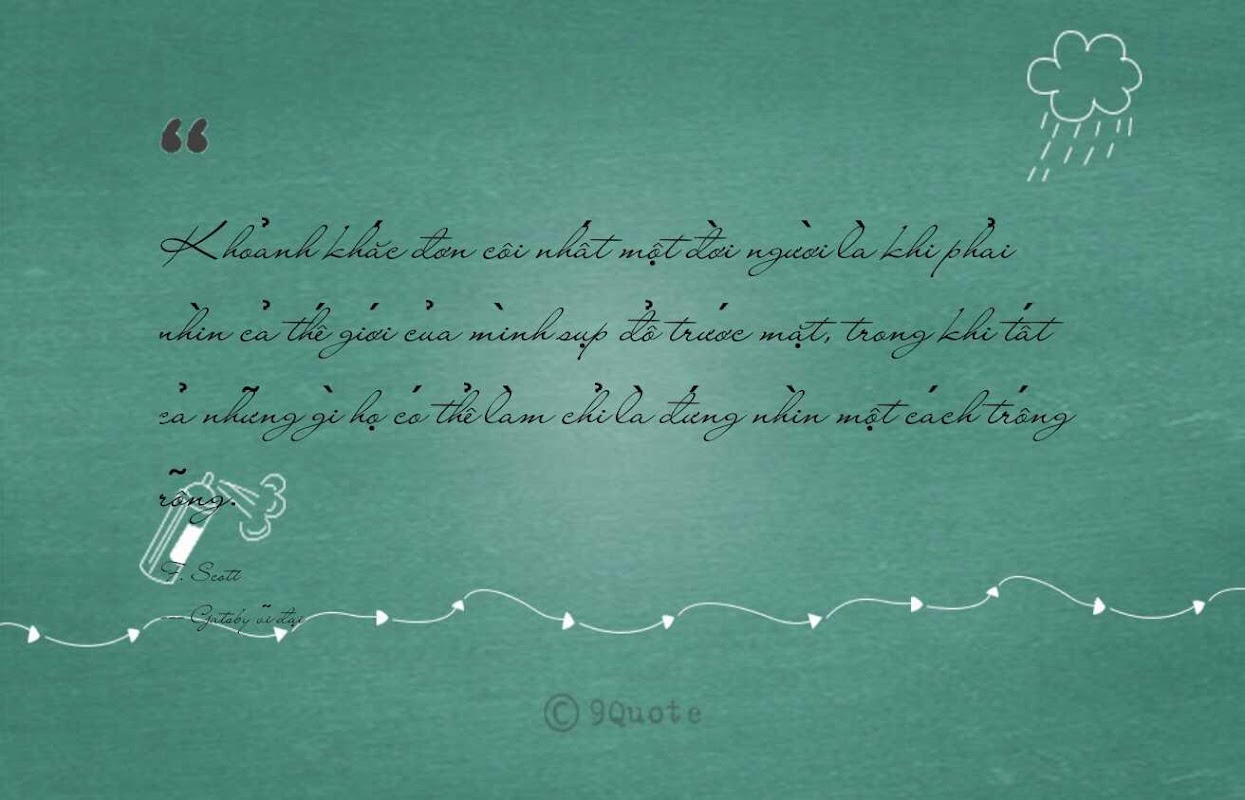 “
Khoảnh khắc đơn côi nhất một đời người là khi phải
nhìn cả thế giới của mình sụp đổ trước mặt, trong khi tất
cả những gì họ có thể làm chỉ là đứng nhìn một cách trống
rỗng.
F. Scott
— Gatsby vĩ đại
© 9Quote